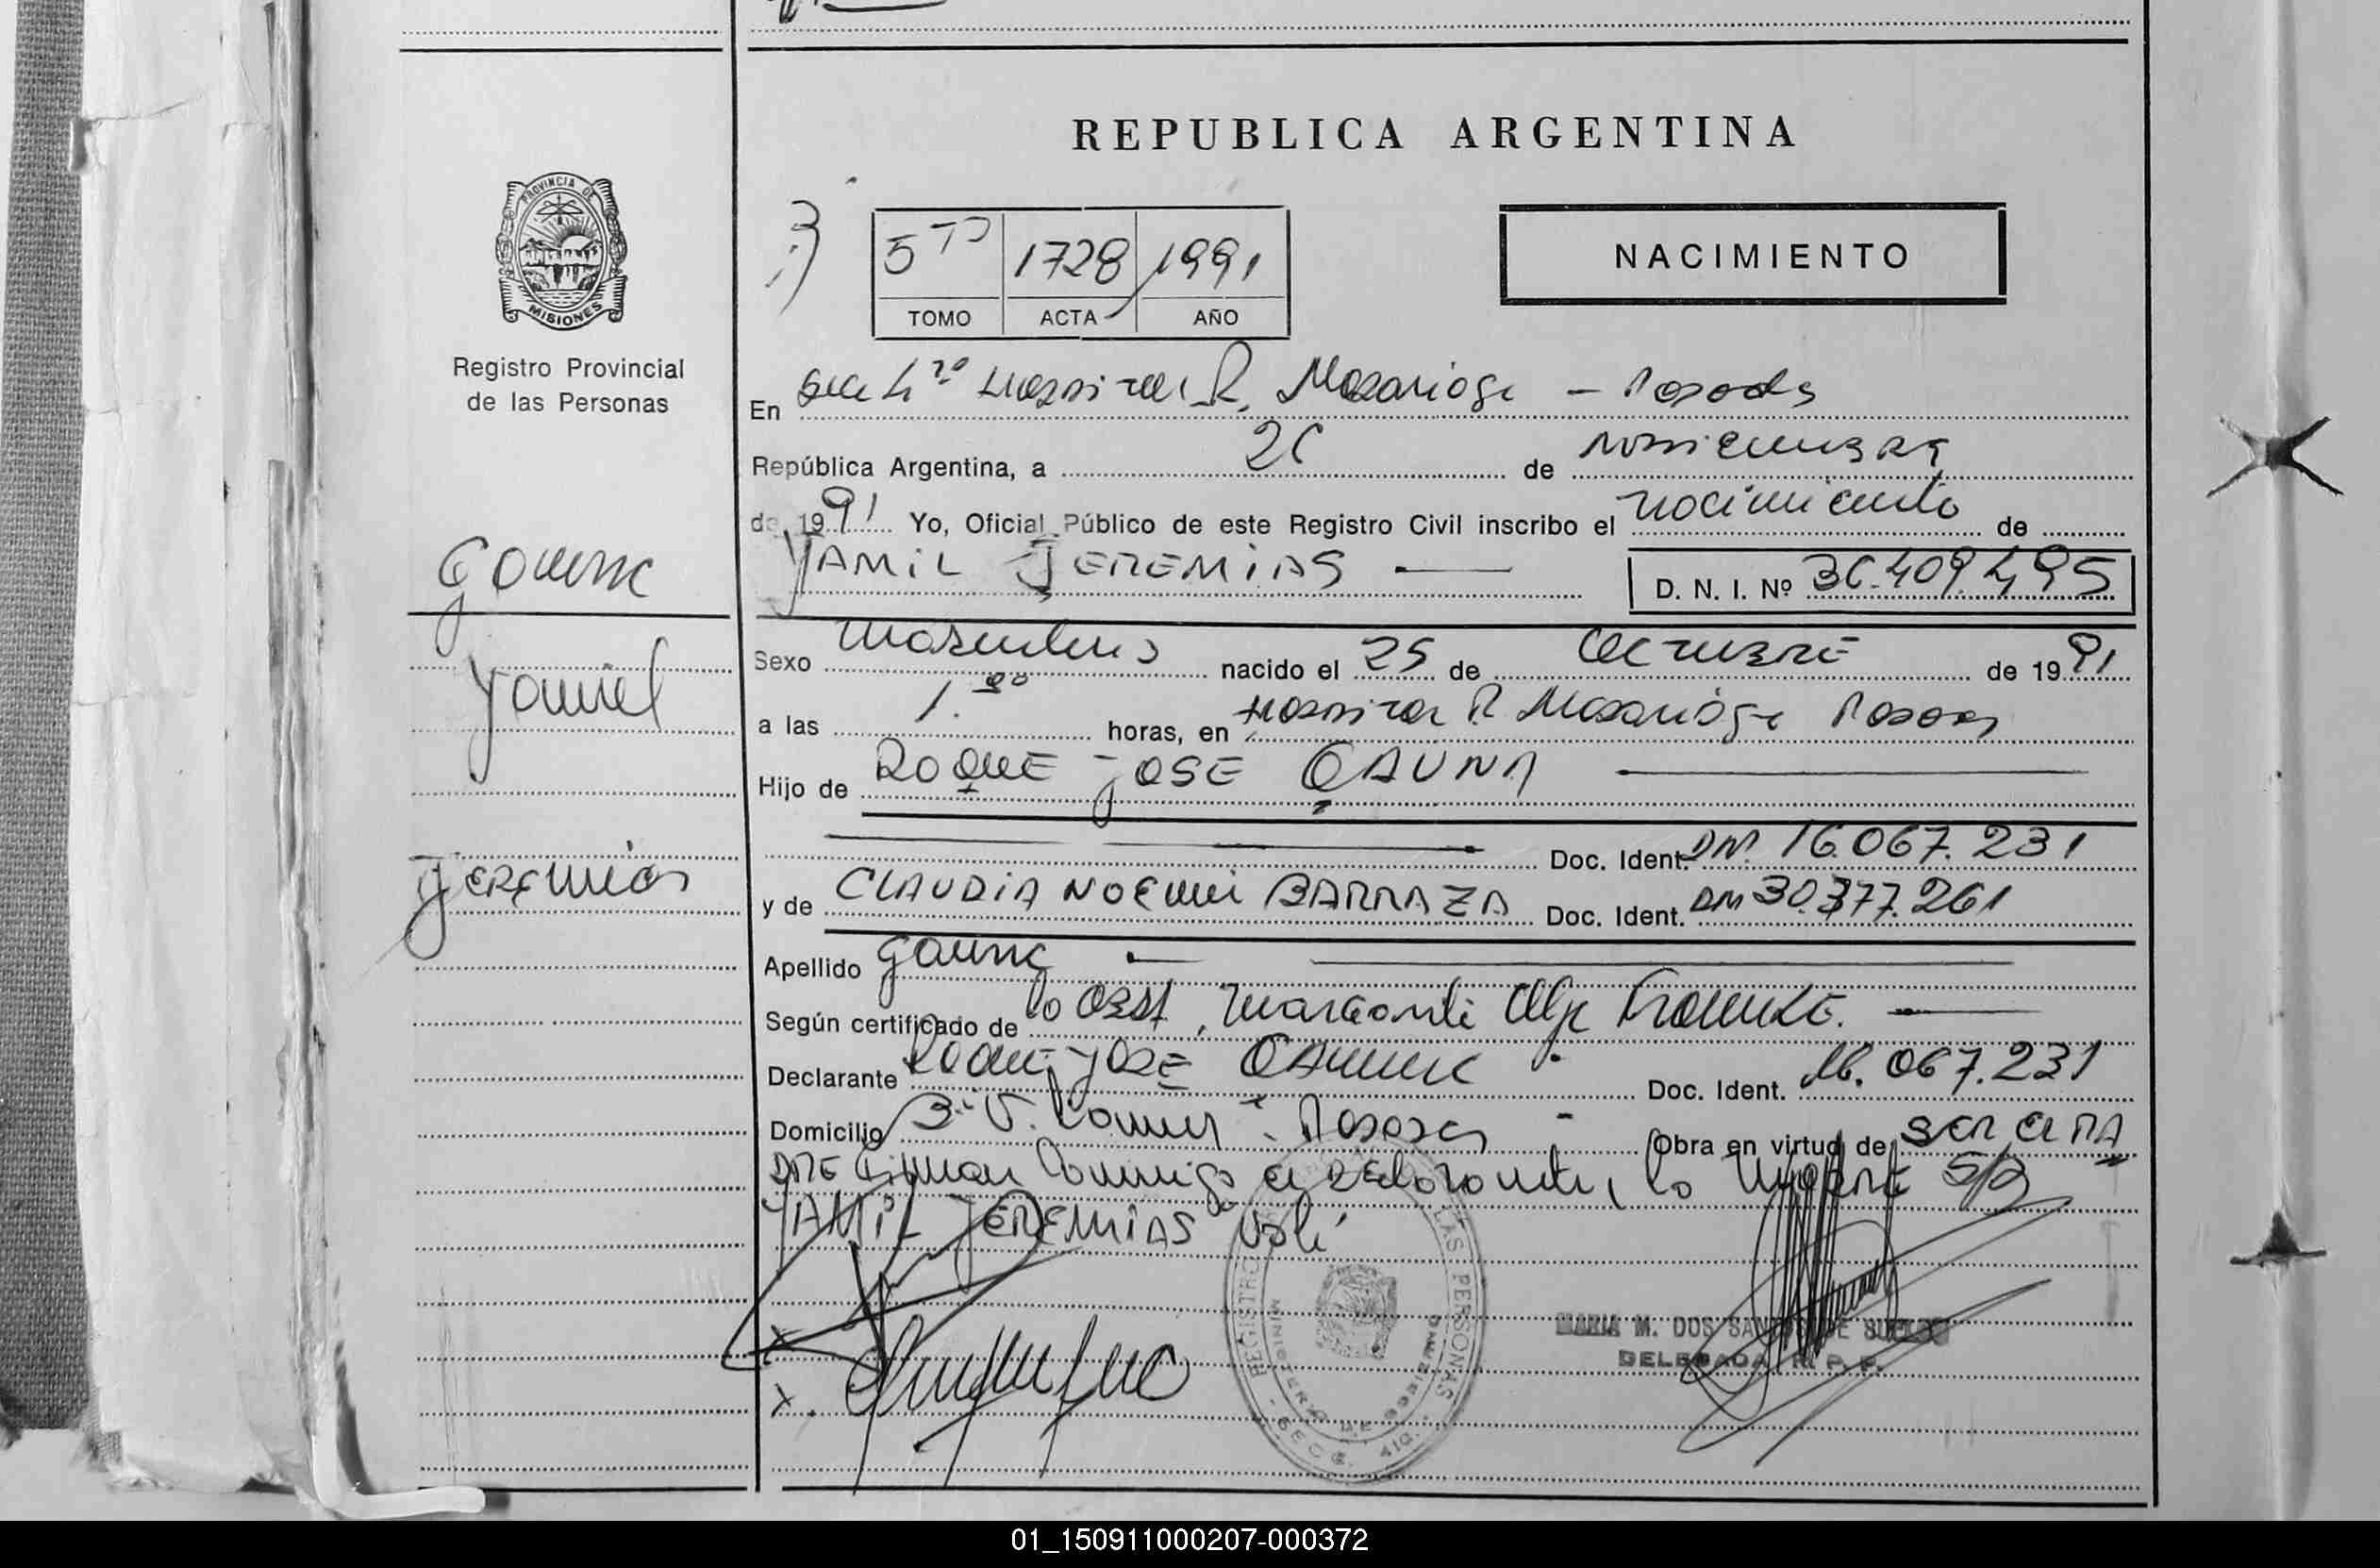 REPUBLICA ARGENTINA
PROVINCIA DE
MISIONES
Registro Provincial
de las Personas
5 TO 1728 1991
TOMO ACTA AÑO
NACIMIENTO
En Hospital R. Madariaga - Posadas
República Argentina, a 26 de noviembre
de 1991 Yo, Oficial Público de este Registro Civil inscribo el nacimiento de
YAMIL JEREMIAS
D. N. I. Nº 36.409.495
Gauna
Yamil
Jeremias
Sexo masculino nacido el 25 de Octubre de 1991
a las horas, en Hospital R. Madariaga Posadas
Hijo de ROQUE JOSE GAUNA
Doc. Ident. DNI 16.067.231
y de CLAUDIA NOEMI BARRAZA Doc. Ident. DNI 30.377.261
Apellido Gauna
Según certificado de la Obst. Olga
Declarante Roque JOSE GAUNA Doc. Ident. 16.067.231
Domicilio Posadas Obra en virtud de ser el PA
DRE Firman conmigo el declarante, la madre S/R
YAMIL JEREMIAS Vale
REGISTRO LAS PERSONAS
MINISTERIO DE
MARIA M. DOS SANTOS DE
DELEGADA R. P. P.
01_150911000207-000372